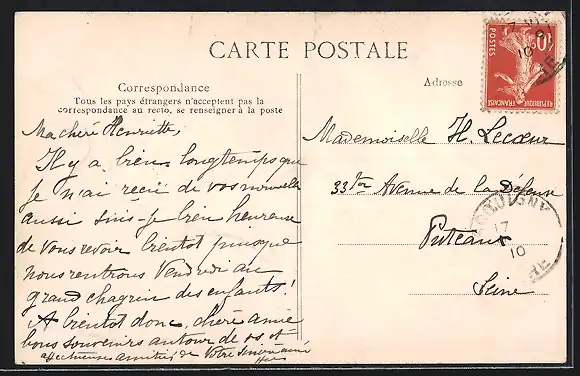 CARTE POSTALE
Correspondance
Tous les pays étrangers n'acceptent pas la
correspondance au recto, se renseigner à la poste
Ma chère Henriette,
Il y a bien longtemps que
je n'ai reçu de vos nouvelles
aussi suis-je bien heureuse
de vous revoir bientôt puisque
nous rentrons Vendredi au
grand chagrin des enfants!
A bientôt donc, chère amie
bons souvenirs autour de vs et
affectueuses amitiés de votre
Adresse
Mademoiselle H. Lecœur
33 ter Avenue de la Défense
Puteaux
Seine
POSTES
10
REPUBLIQUE FRANÇAISE
17
10
17
10